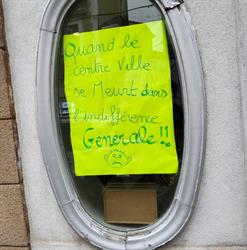 Quand le
centre Ville
se Meurt dans
l'indifférence
Générale !!